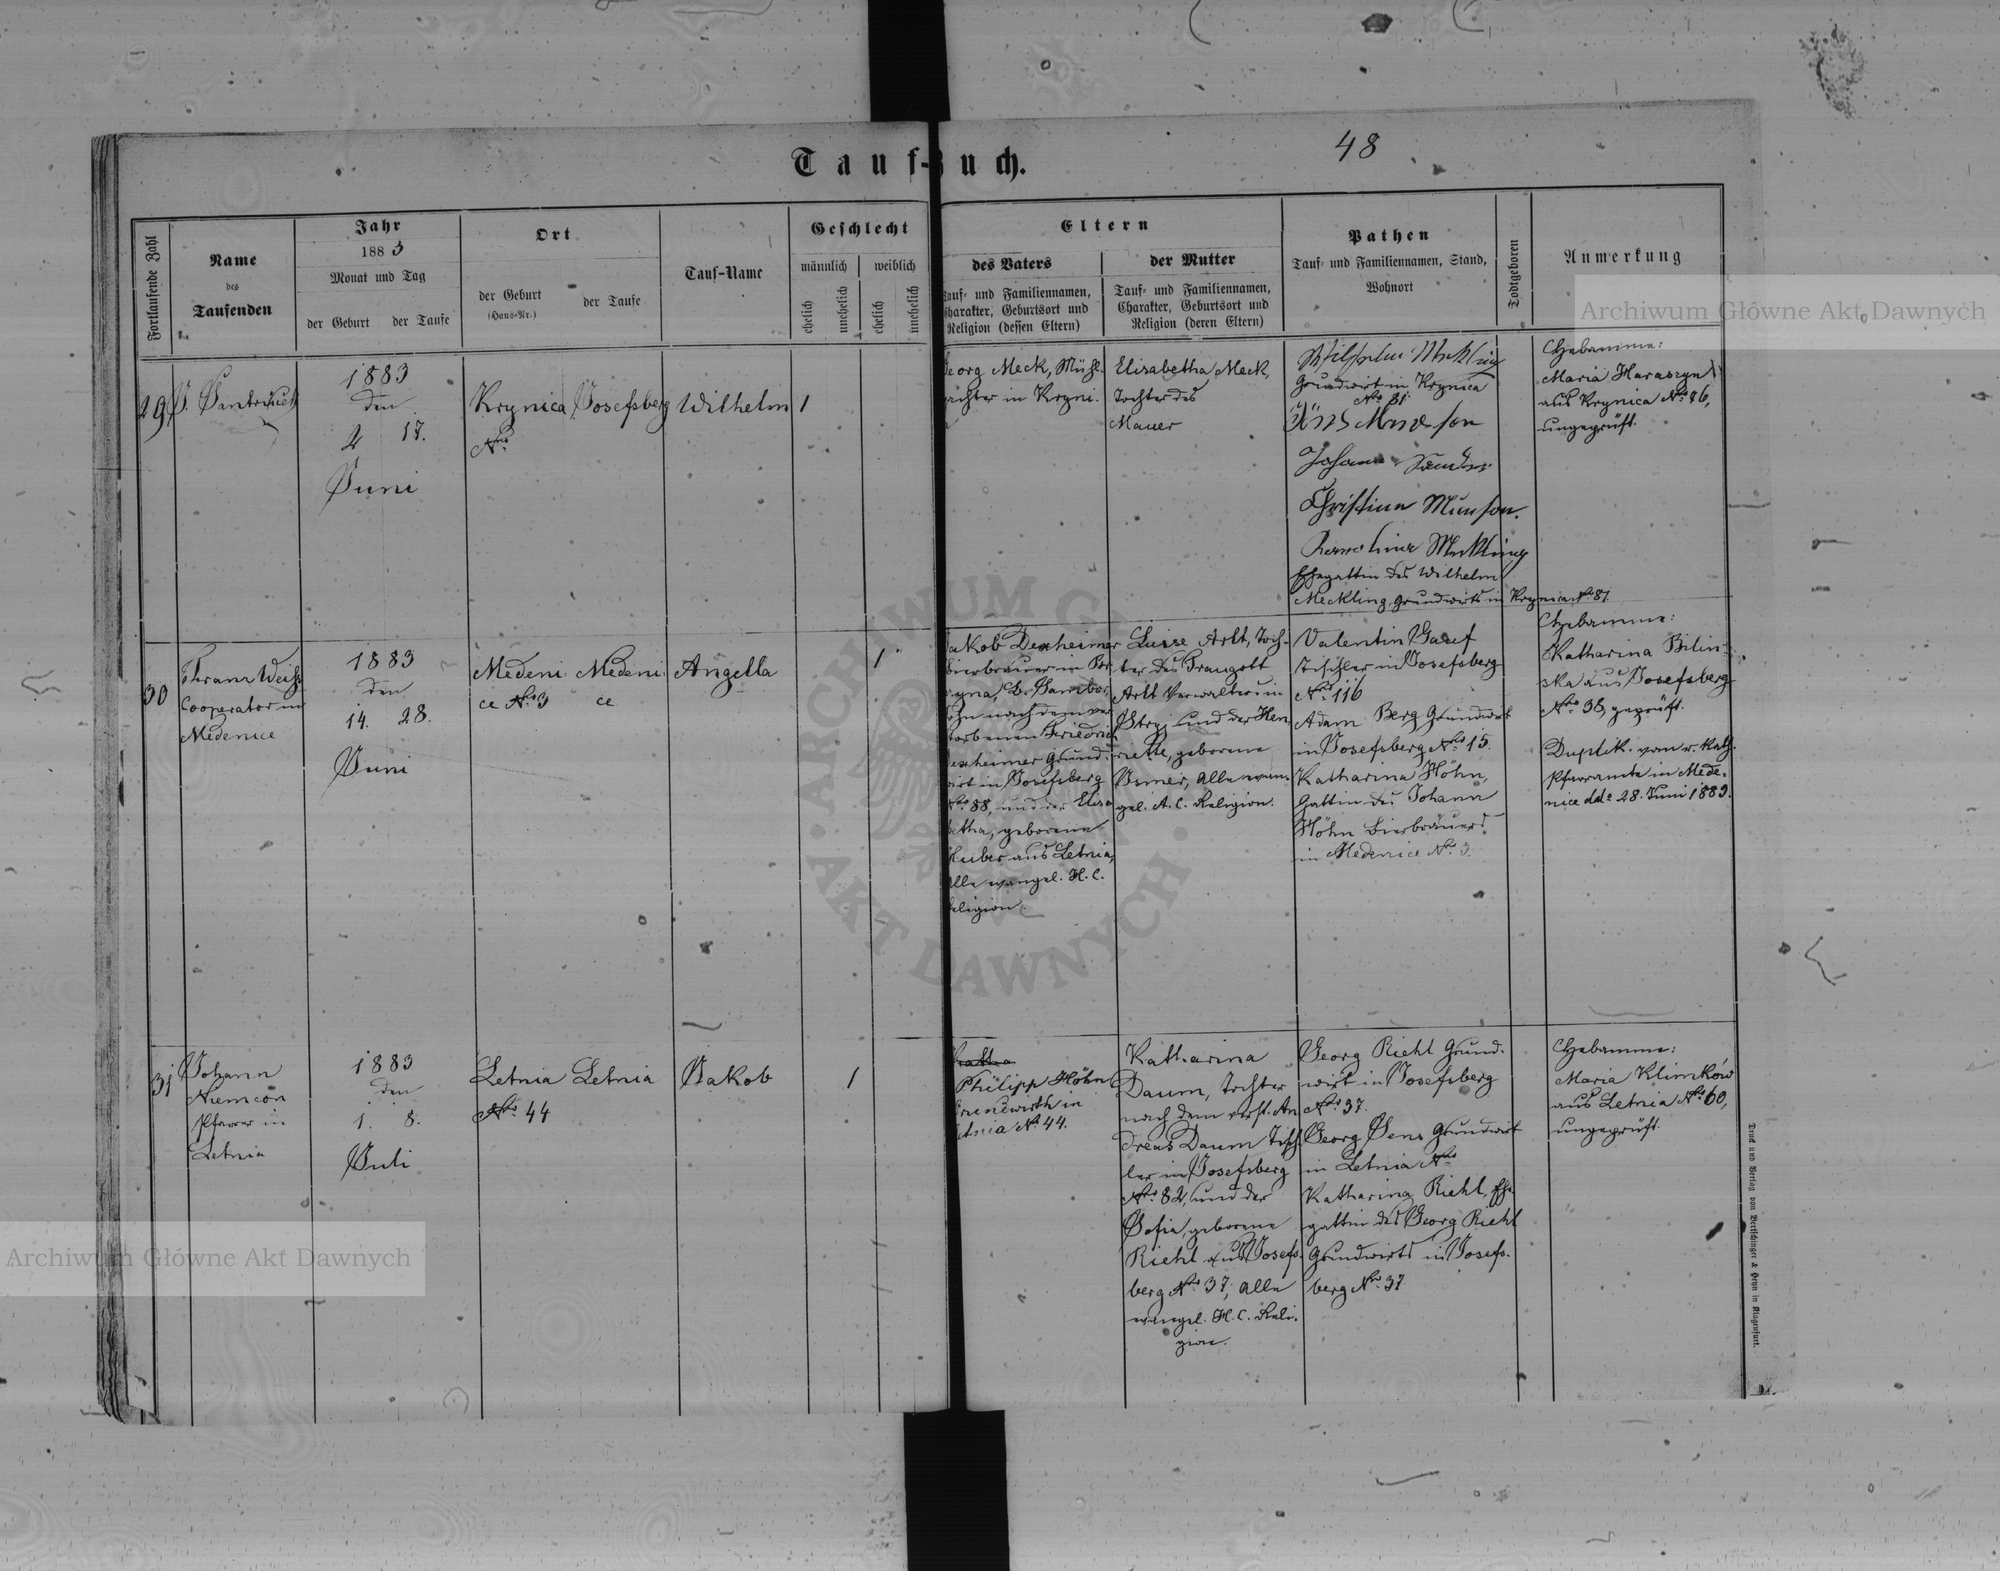 48
Tauf-Buch.
Fortlaufende Zahl
Name
des
Taufenden
Jahr
1883
Monat und Tag
der Geburt
der Taufe
Ort
der Geburt
(Haus-Nr.)
der Taufe
Tauf-Name
Geschlecht
männlich
weiblich
ehelich
unehelich
ehelich
unehelich
Eltern
des Vaters
auf- und Familiennamen,
Charakter, Geburtsort und
Religion (dessen Eltern)
der Mutter
Tauf- und Familiennamen,
Charakter, Geburtsort und
Religion (deren Eltern)
Pathen
Tauf- und Familiennamen, Stand,
Wohnort
Todtgeboren
Anmerkung
29
1883
den
2 17.
Juni
Krynica
Nro
Josefsberg
Wilhelm
1
eorg Meck, Mühl-
ächter in Kryni.
Elisabetha Meck,
Tochter des
Mauer
Wilhelm Mekling
Grundwirt in Krynica
Nro 81.
Johann
Christina Munson.
Karolina Mekling
Ehegattin des Wilhelm
Meckling, Grundwirts in Krynica Nro 81
Hebamme:
Maria Haraszyn
aus Krynica Nro 26,
ungeprüft.
30
Franz Weiss
Cooperator in
Medenice
1883
den
14. 28.
Juni
Medeni
ce Nro 3
Medeni
ce
Angella
1
akob Dexheimer
Bierbrauer in
Sambor,
ohn nach dem ver
torbenen Friedrich
exheimer Grund-
wirt in Josefsberg
Nro 88, und der Elisa
betha, geborene
Huber aus Letnia,
alle evangel. H. C.
eligion.
Luise Arlt, Toch-
ter des Traugott
Arlt Verwalters in
Stryj und der Hen
riette, geborene
alle evan-
gel. A. C. Religion.
Valentin
Tischler in Josefsberg
Nro 116
Adam Berg Grundwirt
in Josefsberg Nro 15.
Katharina Höhn,
Gattin des Johann
Höhn Bierbräuers
in Medenice Nro 3.
Hebamme:
Katharina Bilin-
ska aus Josefsberg
Nro 38, geprüft.
Duplik. vom r. kath.
Pfarramte in Mede-
nice ddo 28. Juni 1883.
31
Johann
Niemcon
Pfarrer in
Letnia
1883
den
1. 8.
Juli
Letnia
Nro 44
Letnia
Jakob
1
Philipp Höhn
Grundwirth in
etnia Nro 44.
Katharina
Daum, Tochter
nach dem verst. An
dreas Daum Tisch
ler in Josefsberg
Nro 82, und der
Sofia, geborene
Riehl aus Josefs-
berg Nro 37, alle
evangel. H. C. Reli-
gion.
Georg Riehl Grund-
wirt in Josefsberg
Nro 37.
Georg Sens Grundwirt
in Letnia Nro
Katharina Riehl, Ehe
gattin des Georg Riehl
Grundwirts in Josefs-
berg Nro 37
Hebamme:
Maria Klimków
aus Letnia Nro 60,
ungeprüft.
Druck und Verlag von Bertschinger & Heyn in Klagenfurt.
Archiwum Główne Akt Dawnych
Archiwum Główne Akt Dawnych
ARCHIWUM GŁÓWNE AKT DAWNYCH